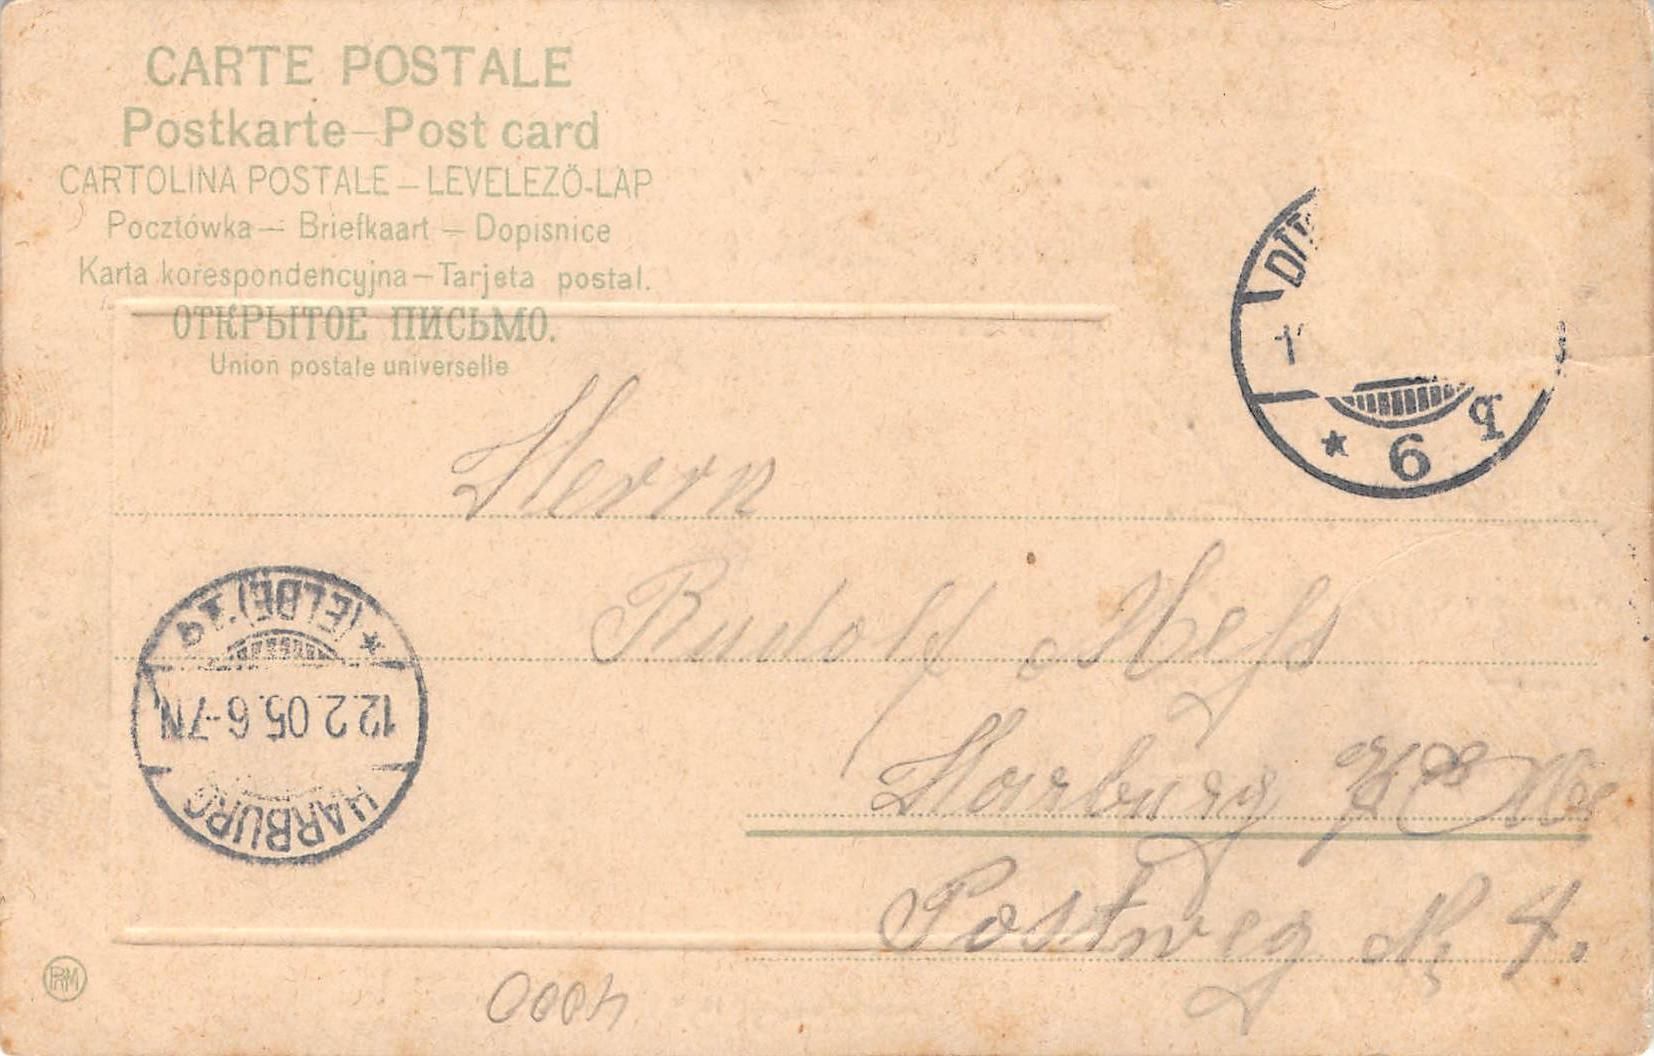 CARTE POSTALE
Postkarte—Post card
CARTOLINA POSTALE — LEVELEZŐ-LAP
Pocztówka — Briefkaart — Dopisnice
Karta korespondencyjna — Tarjeta postal.
ОТКРЫТОЕ ПИСЬМО.
Union postale universelle
* 6 q
Herrn
Rudolf Hess
Harburg
Postweg № 4.
HARBURG
12.2.05.6-7N
(ELBE)
*
RPM
4000